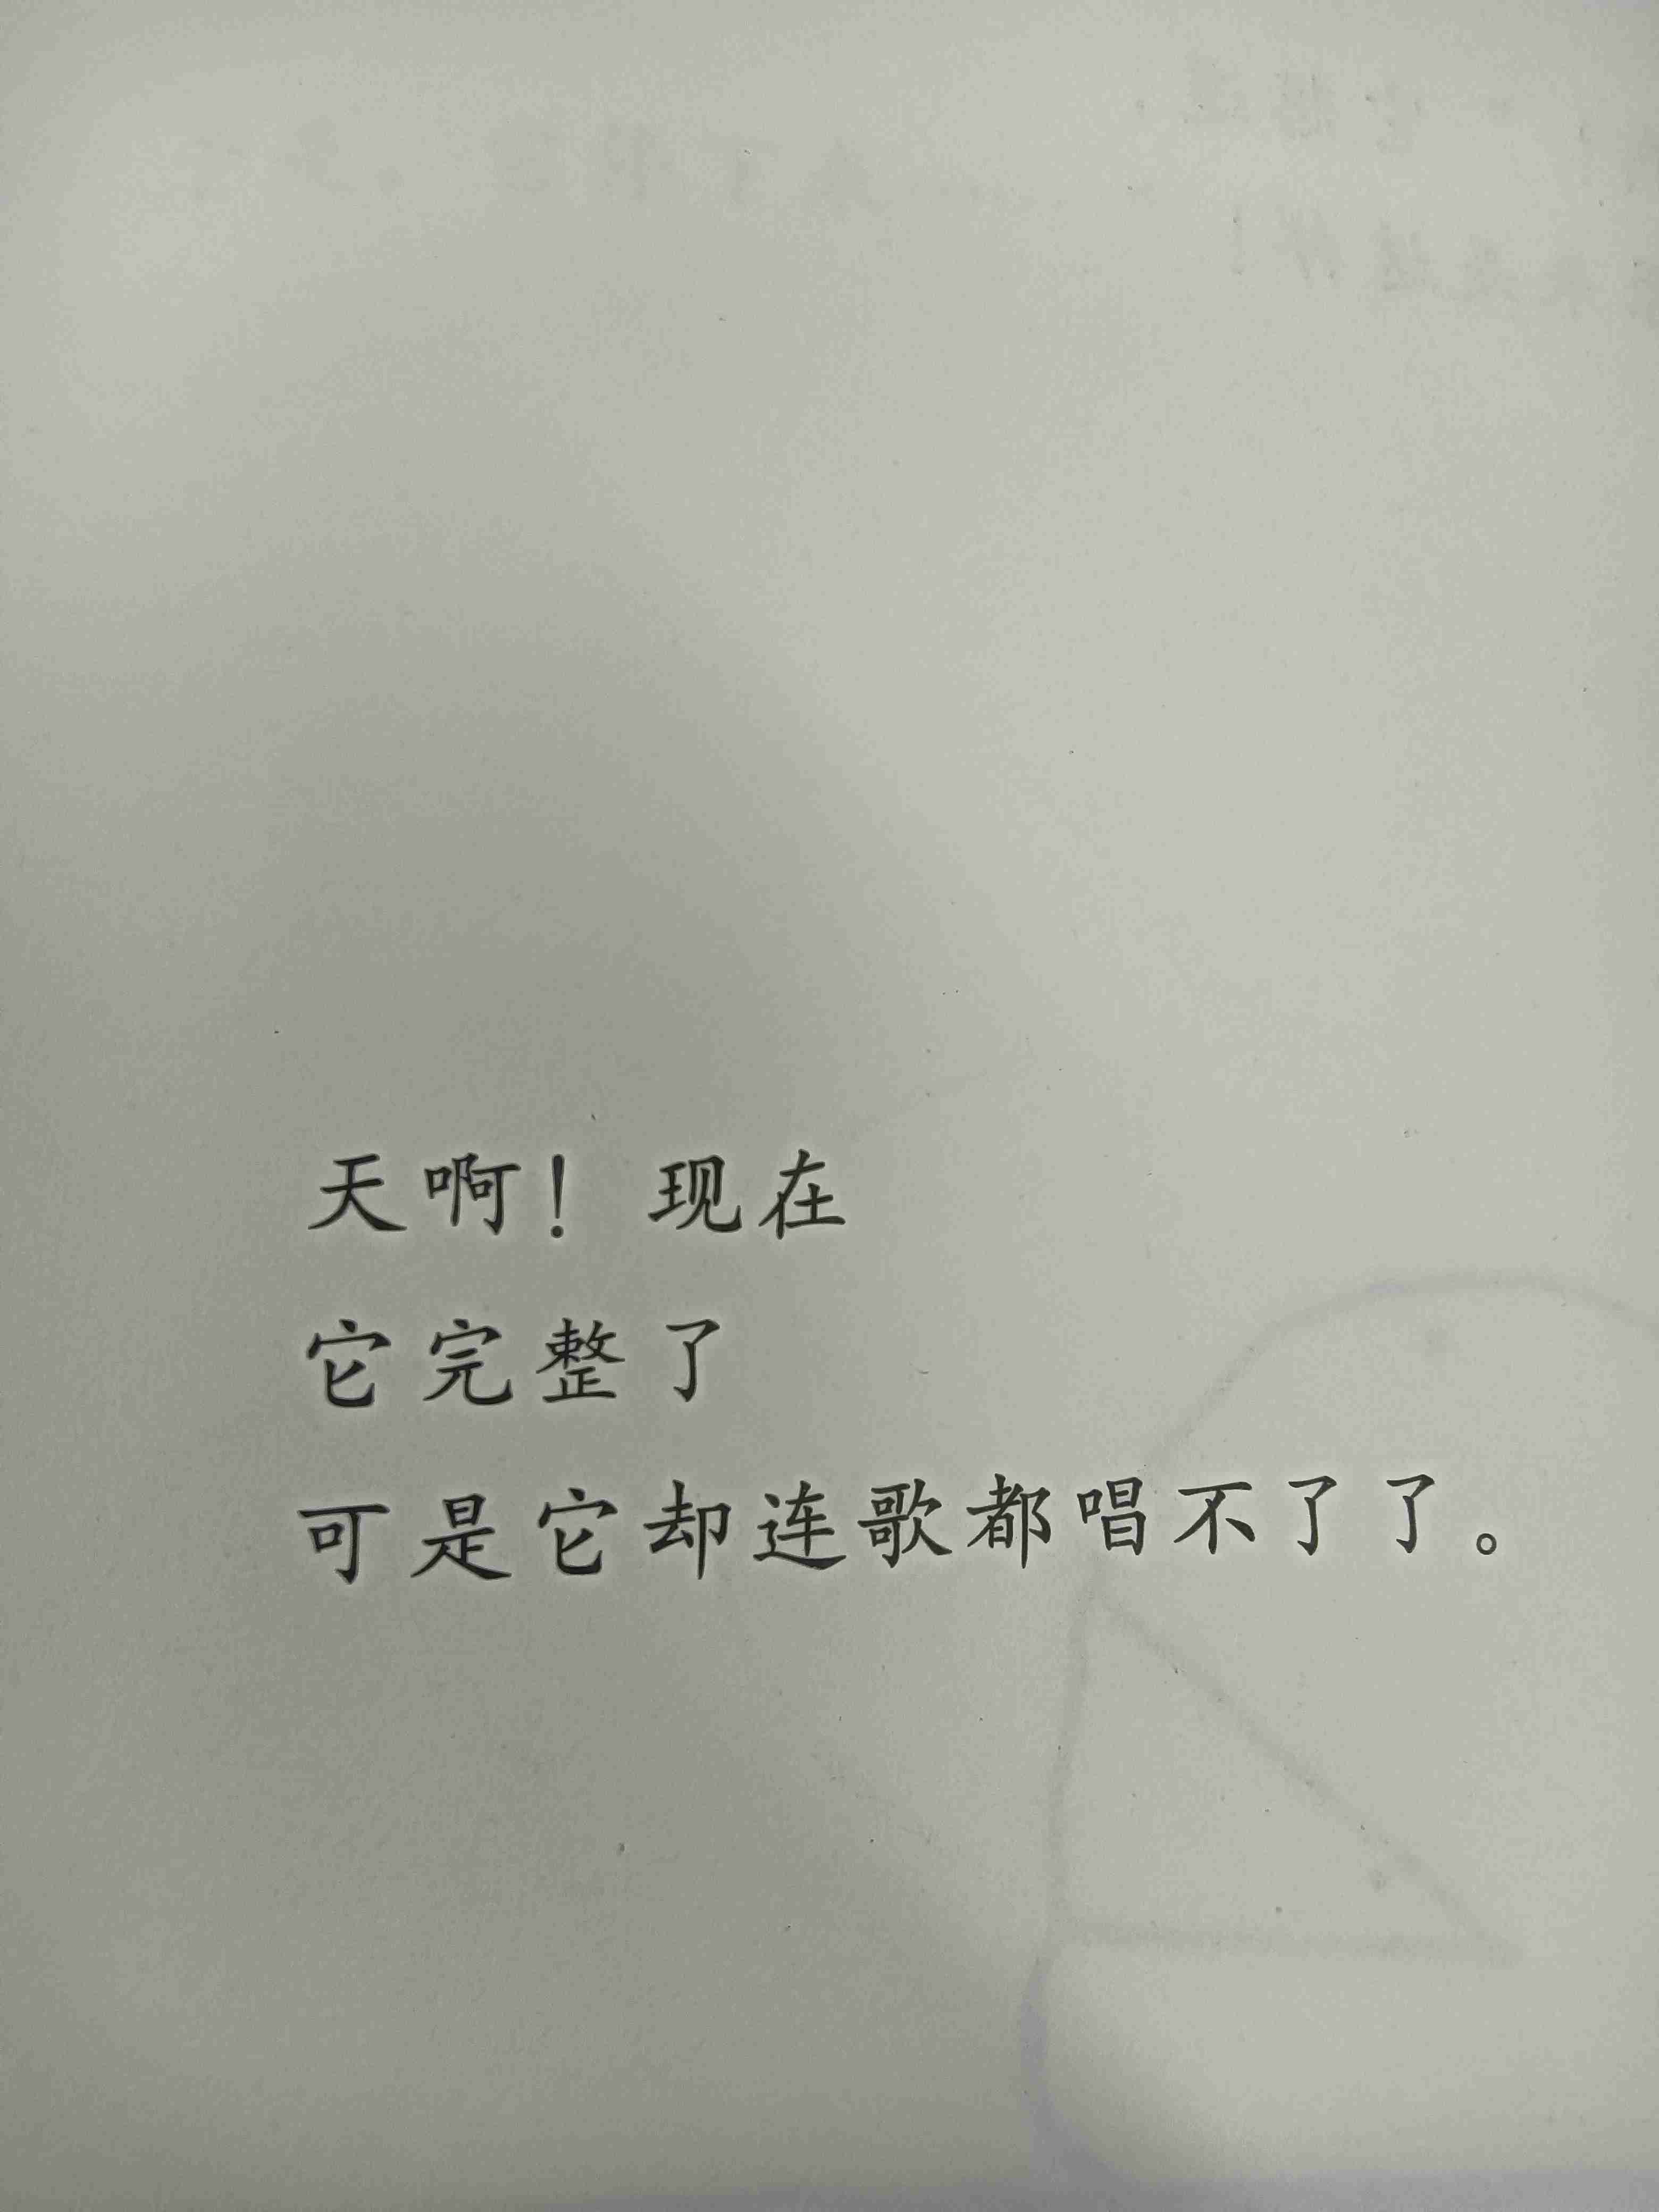 天啊！现在
它完整了
可是它却连歌都唱不了了。